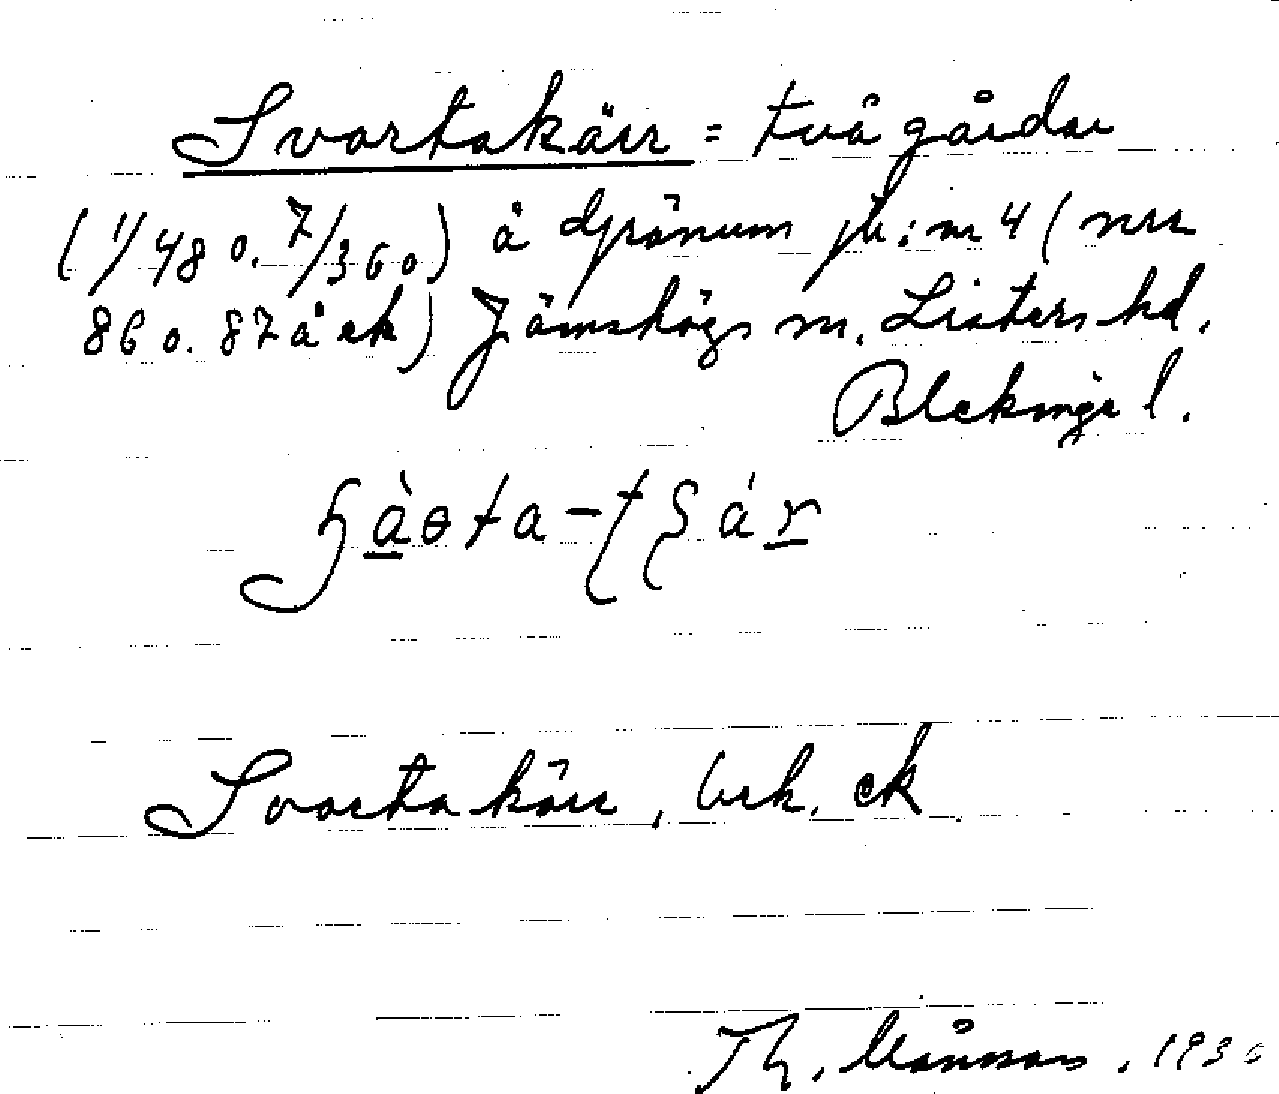 Svartakärr = två gårdar
(1/48 o. 7/360) å Grönum jb: nr 4 (nrr
86 o. 87 å ek) Jämshögs sn. Listers hd.
Blekinge l.
Svartakärr, brk. ek
Th. Månsson, 1930